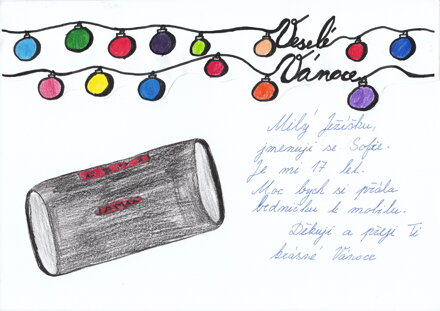 Veselé
Vánoce
Milý Ježíšku,
jmenuji se Sofie.
Je mi 17 let.
Moc bych si přála
bedničku k mobilu.
Děkuji a přeji Ti
krásné Vánoce